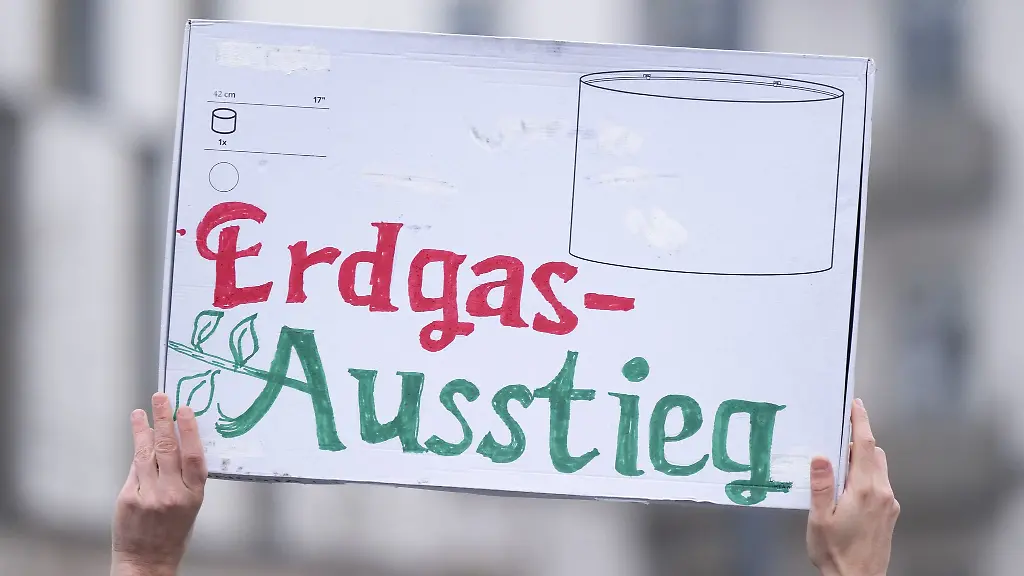 42 cm 17"
1x
Erdgas-
Ausstieg